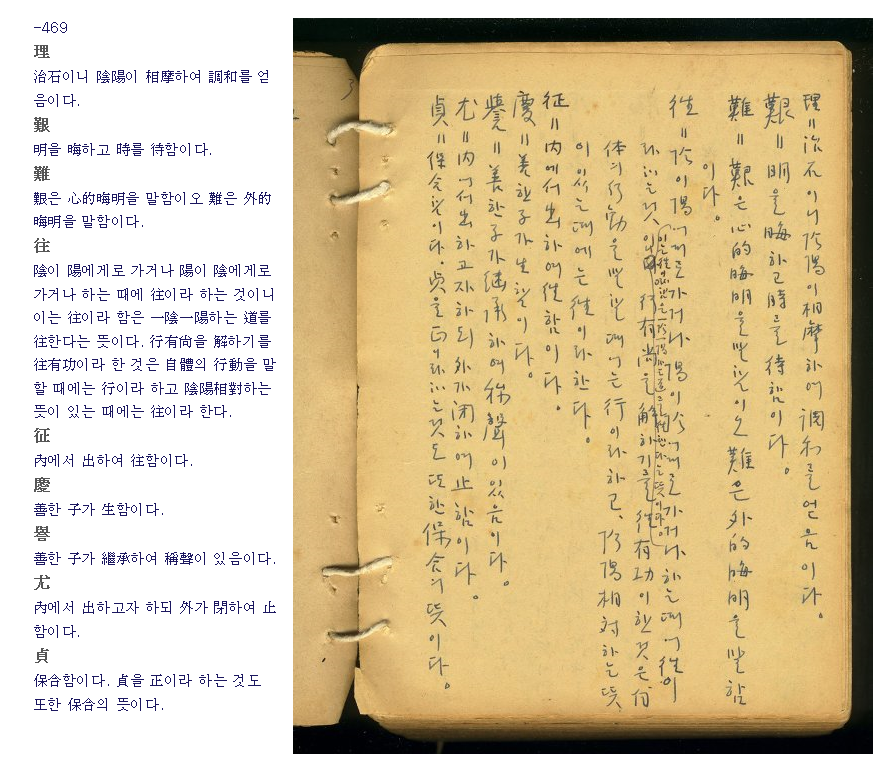 -469
理
治石이니 陰陽이 相摩하여 調和를 얻
음이다.
艱
明을 晦하고 時를 待함이다.
難
艱은 心的晦明을 말함이오 難은 外的
晦明을 말함이다.
往
陰이 陽에게로 가거나 陽이 陰에게로
가거나 하는 때에 往이라 하는 것이니
이는 往이라 함은 一陰一陽하는 道를
往한다는 뜻이다. 行有尙을 解하기를
往有功이라 한 것은 自體의 行動을 말
할 때에는 行이라 하고 陰陽相對하는
뜻이 있는 때에는 往이라 한다.
征
內에서 出하여 往함이다.
慶
善한 子가 生함이다.
譽
善한 子가 繼承하여 稱聲이 있음이다.
尤
內에서 出하고자 하되 外가 閉하여 止
함이다.
貞
保合함이다. 貞을 正이라 하는 것도
또한 保合의 뜻이다.
理 = 治石이니 陰陽이 相摩하여 調和를 얻음이다.
艱 = 明을 晦하고 時를 待함이다.
難 = 艱은 心的晦明을 말함이오 難은 外的晦明을 말함
이다.
往 = 陰이 陽에게로 가거나 陽이 陰에게로 가거나 하는 때에 往이
라 하는 것이니 行有尙을 解하기를 往有功이라 한 것은 自
이는 往이라 함은 一陰一陽하는 道를 往한다는 뜻이다
体의 行動을 말할 때에는 行이라 하고, 陰陽相対하는 뜻
이 있는 때에는 往이라 한다.
征 = 內에서 出하여 往함이다.
慶 = 善한 子가 生함이다.
譽 = 善한 子가 継承하여 称聲이 있음이다.
尤 = 內에서 出하고자 하되 外가 閉하여 止함이다.
貞 = 保合함이다. 貞을 正이라 하는 것도 또한 保合의 뜻이다.